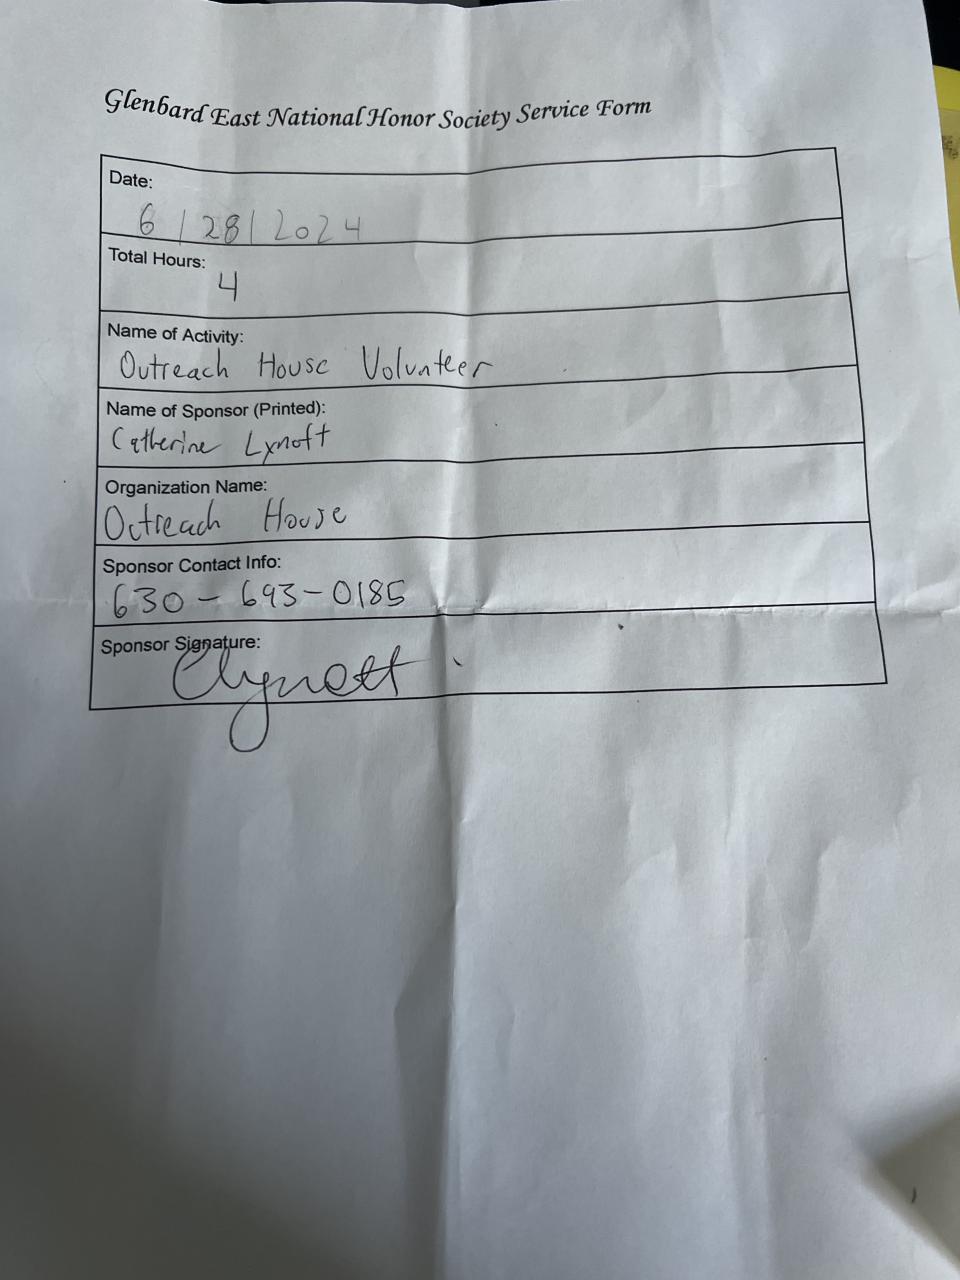 Glenbard East National Honor Society Service Form
Date:
6/28/2024
Total Hours:
4
Name of Activity:
Outreach House Volunteer
Name of Sponsor (Printed):
Catherine Lynott
Organization Name:
Outreach House
Sponsor Contact Info:
630-693-0185
Sponsor Signature:
Clynott